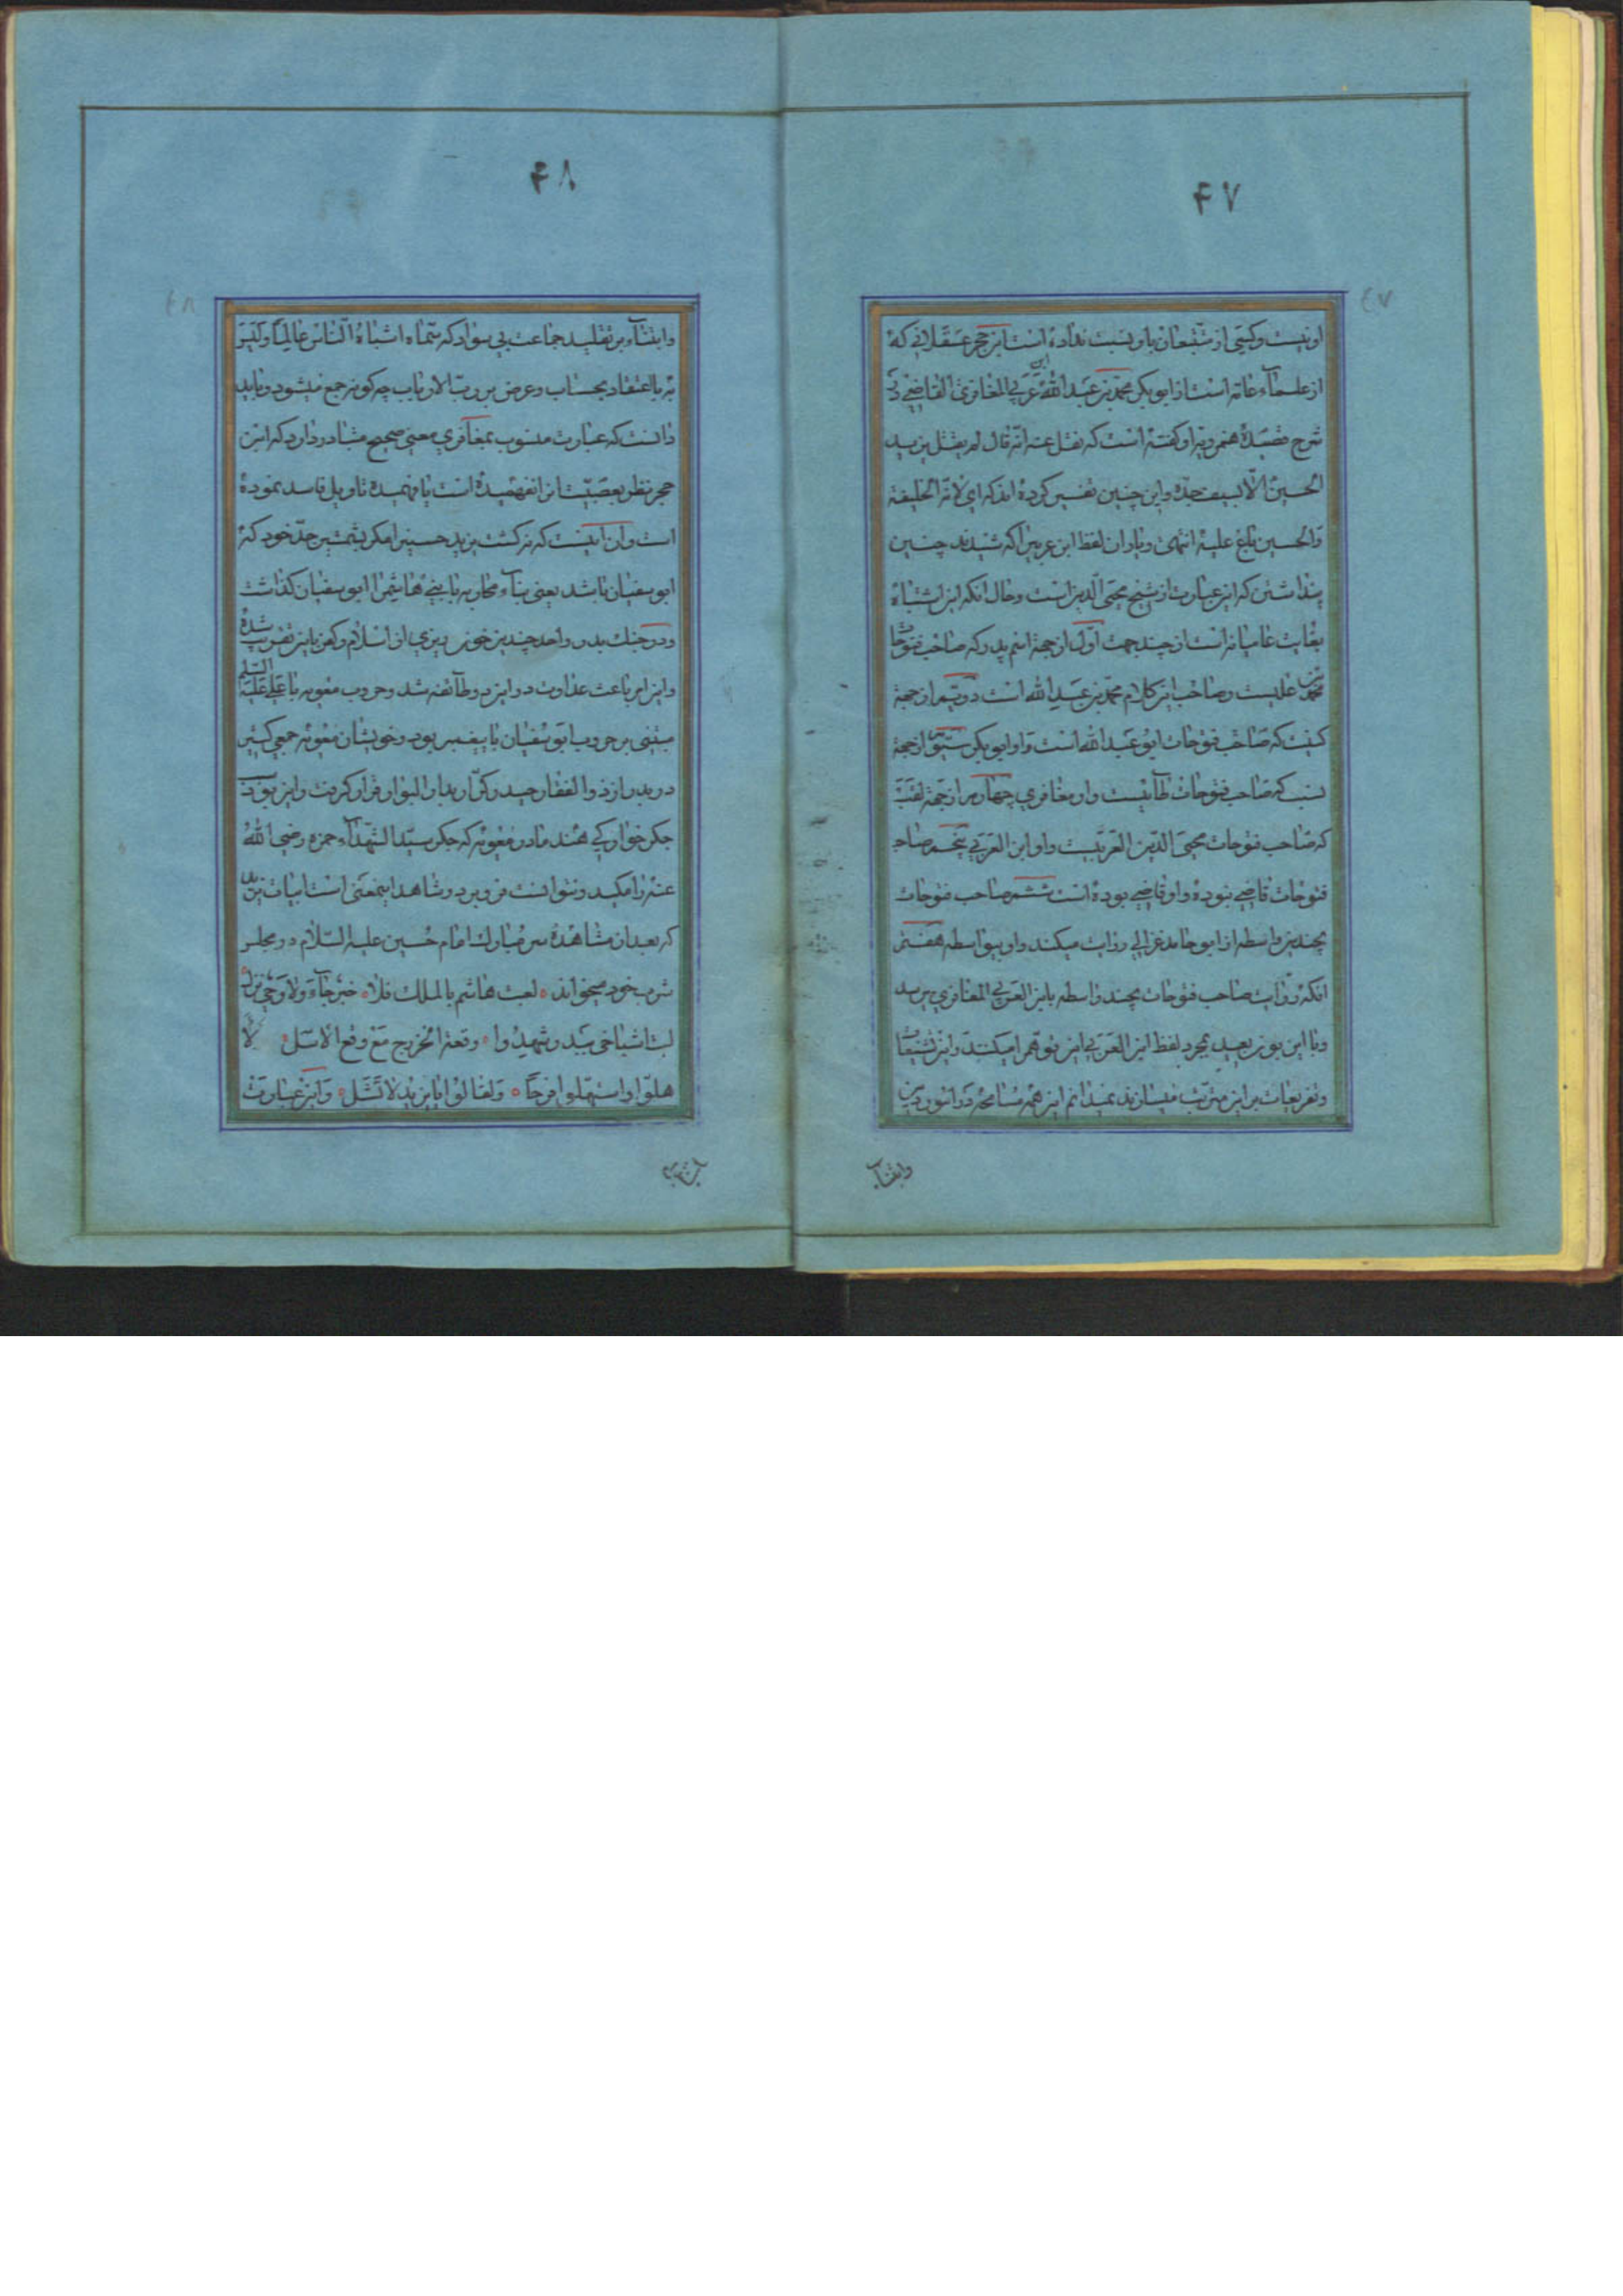 ۴۷
اونیست وکسی از متتبعان باو نسبت نداده است ابن حجر عسقلانی که
از علماء عامه است از ابو بکر محمد بن عبد الله ابن عربی المغافری القاضی در
شرح قصیده همزیه او کفته است که نقل عنه انه قال لم یقتل یزید
الحسین الا بسیف جده واین چنین تفسیر کرده اند که ای لانه الخلیفة
والحسین باغ علیه انتهی وناوان لفظ ابن عربی را که شنیدند چنین
پنداشتند که این عبارت از شیخ محیی الدین است وحال انکه این اشتباه
بغایت عامیانه است از چند جهت اول از جهة اسم پدر که صاحب فتوحات
محمد بن علیست وصاحب این کلام محمد بن عبد الله است دویم از جهة
کنیت که صاحب فتوحات ابو عبد الله است واو ابو بکر سیوم از جهة
نسب که صاحب فتوحات طائیست واو مغافری چهارم از جهة لقب
که صاحب فتوحات محیی الدین العربیست واو ابن العربی پنجم صاحب
فتوحات قاضی نبوده واو قاضی بوده است ششم صاحب فتوحات
بچندین واسطه از ابو حامد غزالی روایت میکند واو بیواسطه هفتم
انکه روایت صاحب فتوحات بچند واسطه بابن العربی المغافری میرسد
وبا این بون بعید بمجرد لفظ ابن العربی این توهم را میکنند واین تشنیعات
وتفریعات بر این مترتب میسازند نمیدانم این همه مسامحه در امور دین
وابتناء
۴۸
وابتناء بر تقلید جماعت بی سواد که سماه اشباه الناس عالما ولیس
به با اعتقاد بحساب وعرض بر رب الارباب چه کونه جمع میشود وباید
دانست که عبارت منسوب بمغافری معنی صحیح متبادر دارد که ابن
حجر بنظر تعصبیت انرا نفهمیده است یا فهمیده تاویل فاسد نموده
است وان اینست که نه کشت یزید حسین را مکر بشمشیر جد خود که
ابو سفیان باشد یعنی بناء محاربه با بنی هاشم را ابو سفیان کذاشت
ودر جنك بدر واحد چندین خون ریزی از اسلام وکفر باین تقریب شده
واین امر باعث عداوت در این دو طائفه شد وحروب معویه با علی علیه السلم
مبتنی بر حروب ابو سفیان با پیغمبر بود وخویشان معویه جمعی کثیر
در بدر از ذو الفقار حیدر کرار بدار البوار قرار کرفت واین بود
جکر خوارکی هند مادر معویه که جکر سید الشهداء حمزه رضی الله
عنه را مکید ونتوانست فرو برد وشاهد اینمعنی است ابیات یزید
که بعد از مشاهده سر مبارك امام حسین علیه السلام در مجلس
شرب خود میخواند ٥ لعبت هاشم بالملك فلا ٥ خبر جاء ولا وحی نزل ٥
لیت اشیاخی ببدر شهدوا ٥ وقعة الخزرج مع وقع الاسل ٥ لا
هلوا واستهلوا فرحا ٥ ولقالوا یا یزید لا تشل ٥ واین عبارت